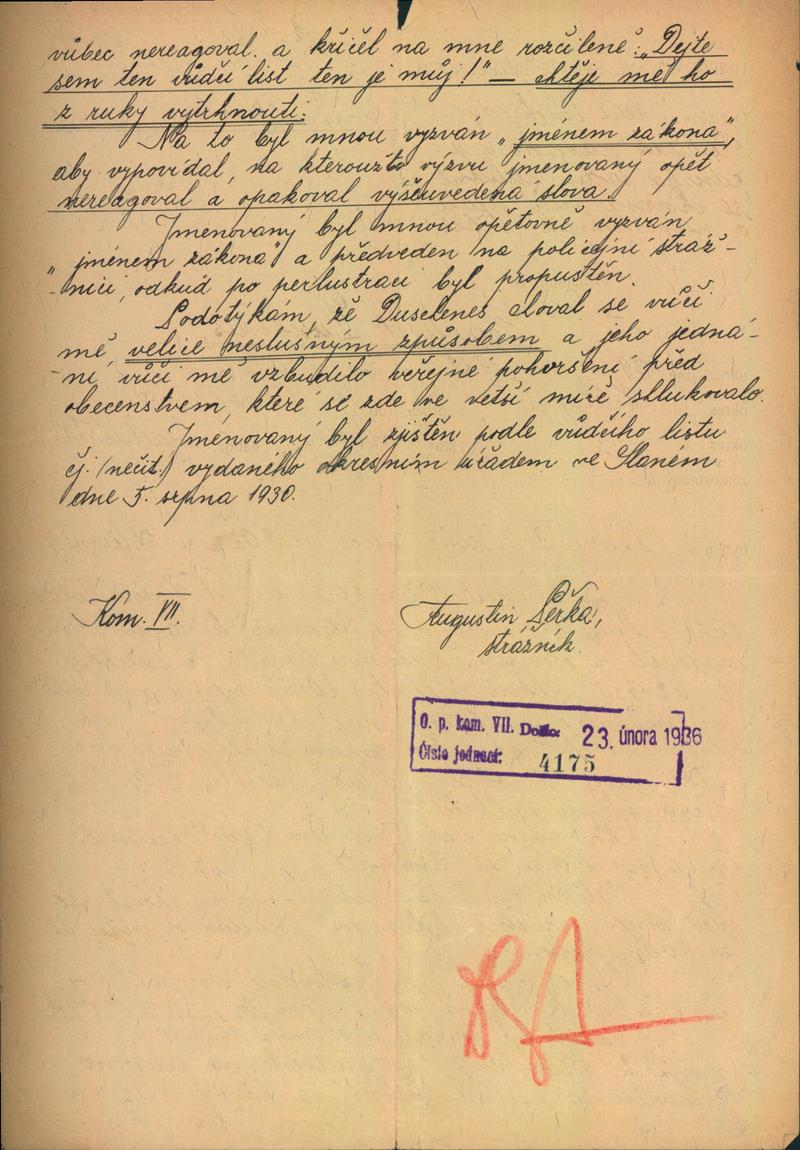 vůbec nereagoval a křičel na mne rozčileně: „Dejte
sem ten vůdčí list ten je můj!" — chtěje mě ho
z ruky vytrhnouti.
Na to byl mnou vyzván „jménem zákona",
aby vypovídal, na kteroužto výzvu jmenovaný opět
nereagoval a opakoval výšeuvedená slova.
Jmenovaný byl mnou opětovně vyzván
„jménem zákona" a předveden na policejní stráž-
-nici, odkud po perlustraci byl propuštěn.
Podotýkám, že Duschenes choval se vůči
mě velice neslušným způsobem a jeho jedná-
-ní vůči mě vzbudilo veřejné pohoršení před
obecenstvem, které se zde ve větší míře shlukovalo.
Jmenovaný byl zjištěn podle vůdčího listu
čj. (nečit.) vydaného okresním úřadem ve Slaném
dne 5. srpna 1930.
Kom. VII.
Augustin Peřka,
strážník.
O. p. kom. VII. Došlo: 23. února 1936
Číslo jednací: 4175